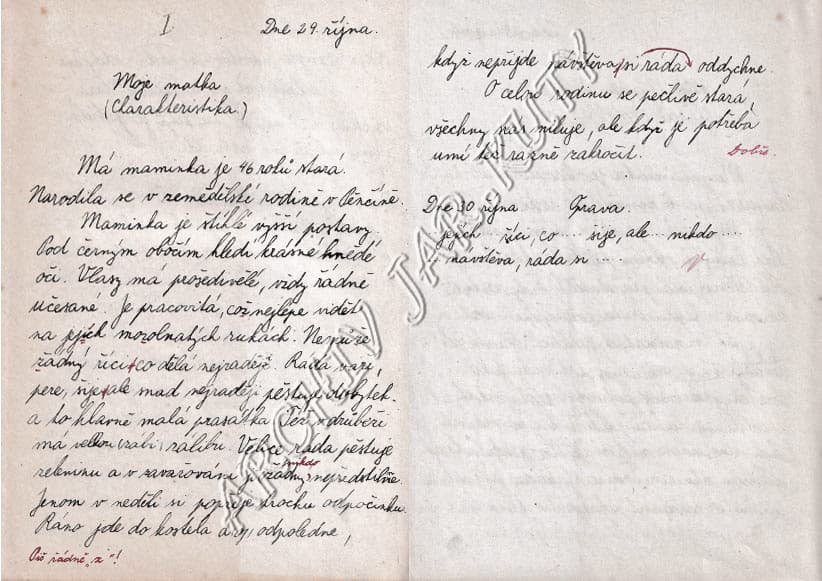 I
Dne 29. října.
Moje matka
(Charakteristika.)
Má maminka je 46 roků stará.
Narodila se v zemědělské rodině v Pěnčíně.
Maminka je štíhlé vyšší postavy.
Pod černým obočím hledí krásné hnědé
oči. Vlasy má prošedivělé, vždy řádně
učesané. Je pracovitá, což nejlépe vidět
na jejích mozolnatých rukách. Neumí
žádný říci, co dělá nejraději. Ráda vaří,
pere, šije, ale snad nejraději pěstuje dobytek
a to hlavně malá prasátka. Též v drůbeři
má velkou zálibu. Velice ráda pěstuje
zeleninu a v zavařování ji žádný nikdo nepředstihne.
Jenom v neděli si popřeje trochu odpočinku.
Ráno jde do kostela a odpoledne,
Piš řádně „z"!
když nepřijde návštěva, si ráda oddychne.
O celou rodinu se pečlivě stará,
všechny nás miluje, ale když je potřeba
umí též rázně zakročit.
Dobře.
Dne 30. října Oprava.
jejích ... říci, co ... šije, ale ... nikdo ...
návštěva, ráda si ...
ARCHIV JAR. KUTÝ